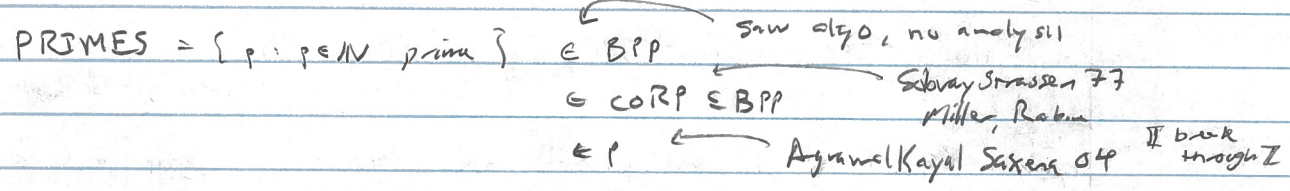 PRIMES = { p : p ∈ ℕ prime } ∈ BPP saw algo, no analysis
∈ coRP ⊆ BPP Solovay Strassen 77
Miller, Rabin
∈ P Agrawal Kayal Saxena 04 !! break through !!